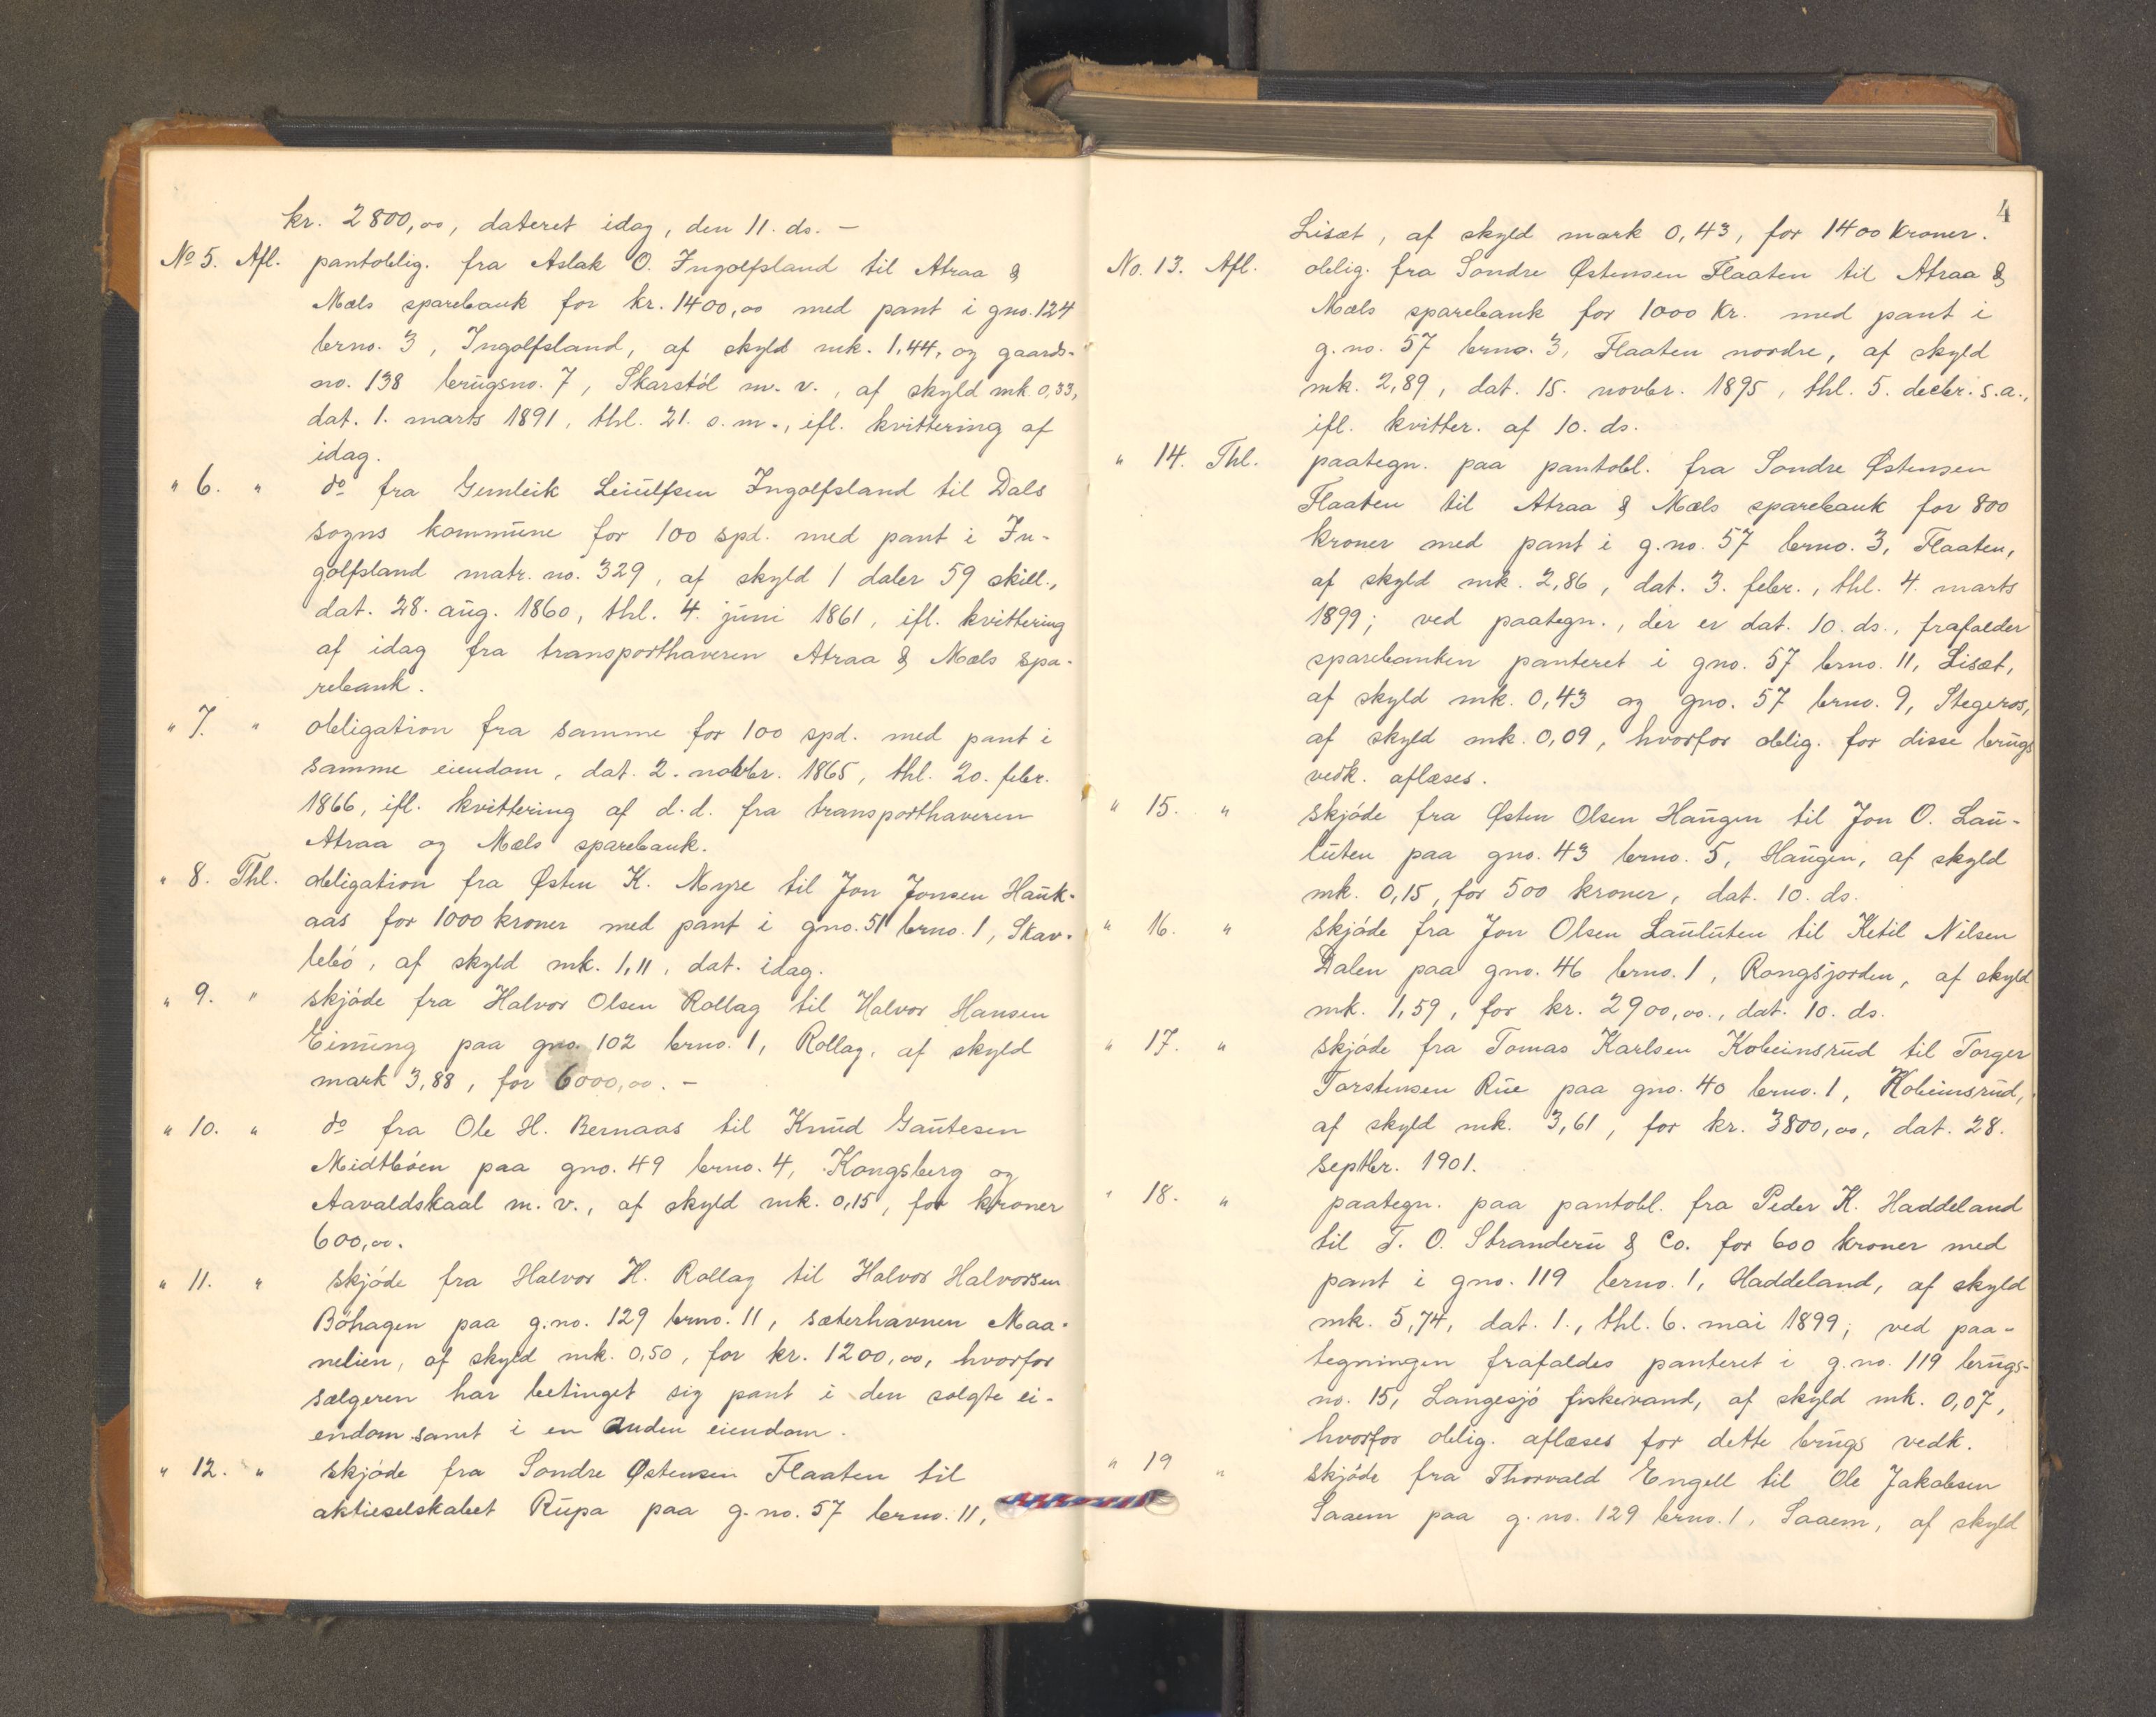 kr. 2800,00, dateret idag, den 11. ds. —
No 5. Afl. pantoblig. fra Aslak O. Ingolfsland til Atraa &
Mæls sparebank for kr. 1400,00 med pant i gno. 124
brno. 3, Ingolfsland, af skyld mk. 1,44, og gaards-
no. 138 brugsno. 7, Skarstöl m. v., af skyld mk. 0,33,
dat. 1. marts 1891, thl. 21. s. m., ifl. kvittering af
idag.
" 6. " do fra Gunleik Leiulfsen Ingolfsland til Dals
sogns kommune for 100 spd. med pant i In-
golfsland matr. no. 329, af skyld 1 daler 59 skill.,
dat. 28. aug. 1860, thl. 4. juni 1861, ifl. kvittering
af idag fra transporthaveren Atraa & Mæls spa-
rebank.
" 7. " obligation fra samme for 100 spd. med pant i
samme eiendom, dat. 2. novbr. 1865, thl. 20. febr.
1866, ifl. kvittering af d. d. fra transporthaveren
Atraa og Mæls sparebank.
" 8. Thl. obligation fra Østen K. Myre til Jon Jonsen Hauk-
aas for 1000 kroner med pant i gno. 51 brno. 1, Skav-
lebö, af skyld mk. 1,11, dat. idag.
" 9. " skjöde fra Halvor Olsen Rollag til Halvor Hansen
Einung paa gno. 102 brno. 1, Rollag, af skyld
mark 3,88, for 6000,00. —
" 10. " do fra Ole H. Bernaas til Knud Gautesen
Midtböen paa gno. 49 brno. 4, Kongsberg og
Aavaldskaal m. v., af skyld mk. 0,15, for kroner
600,00.
" 11. " skjöde fra Halvor H. Rollag til Halvor Halvorsen
Böhagen paa g. no. 129 brno. 11, sæterhavnen Maa-
nelien, af skyld mk. 0,50, for kr. 1200,00, hvorfor
sælgeren har betinget sig pant i den solgte ei-
endom samt i en anden eiendom.
" 12. " skjöde fra Sondre Østensen Flaaten til
aktieselskabet Rupa paa g. no. 57 brno. 11,
4
Lisæt, af skyld mark 0,43, for 1400 kroner.
No. 13. Afl. oblig. fra Sondre Østensen Flaaten til Atraa &
Mæls sparebank for 1000 kr. med pant i
g. no. 57 brno. 3, Flaaten nordre, af skyld
mk. 2,89, dat. 15. novbr. 1895, thl. 5. decbr. s. a.,
ifl. kvitter. af 10. ds.
" 14. Thl. paategn. paa pantobl. fra Sondre Østensen
Flaaten til Atraa & Mæls sparebank for 800
kroner med pant i g. no. 57 brno. 3, Flaaten,
af skyld mk. 2,86, dat. 3. febr., thl. 4. marts
1899; ved paategn., der er dat. 10. ds., frafalder
sparebanken panteret i gno. 57 brno. 11, Lisæt,
af skyld mk. 0,43 og gno. 57 brno. 9, Stegeros,
af skyld mk. 0,09, hvorfor oblig. for disse brugs
vedk. aflæses.
" 15. " skjöde fra Østen Olsen Haugen til Jon O. Lau-
luten paa gno. 43 brno. 5, Haugen, af skyld
mk. 0,15, for 500 kroner, dat. 10. ds.
" 16. " skjöde fra Jon Olsen Lauluten til Ketil Nilsen
Dalen paa gno. 46 brno. 1, Rongsjorden, af skyld
mk. 1,59, for kr. 2900,00., dat. 10. ds.
" 17. " skjöde fra Tomas Karlsen Kobeinsrud til Torger
Torstensen Rue paa gno. 40 brno. 1, Kobeinsrud,
af skyld mk. 3,61, for kr. 3800,00, dat. 28.
septbr. 1901.
" 18. " paategn. paa pantobl. fra Peder K. Haddeland
til T. O. Stranderu & Co. for 600 kroner med
pant i gno. 119 brno. 1, Haddeland, af skyld
mk. 5,74, dat. 1., thl. 6. mai 1899; ved paa-
tegningen frafaldes panteret i g. no. 119 brugs-
no. 15, Langesjö fiskevand, af skyld mk. 0,07,
hvorfor oblig. aflæses for dette brugs vedk.
" 19 " skjöde fra Thorvald Engell til Ole Jakobsen
Saaem paa g. no. 129 brno. 1, Saaem, af skyld